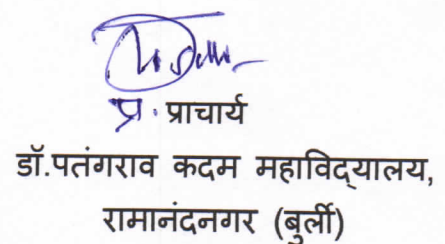 प्र. प्राचार्य
डॉ.पतंगराव कदम महाविद्यालय,
रामानंदनगर (बुर्ली)